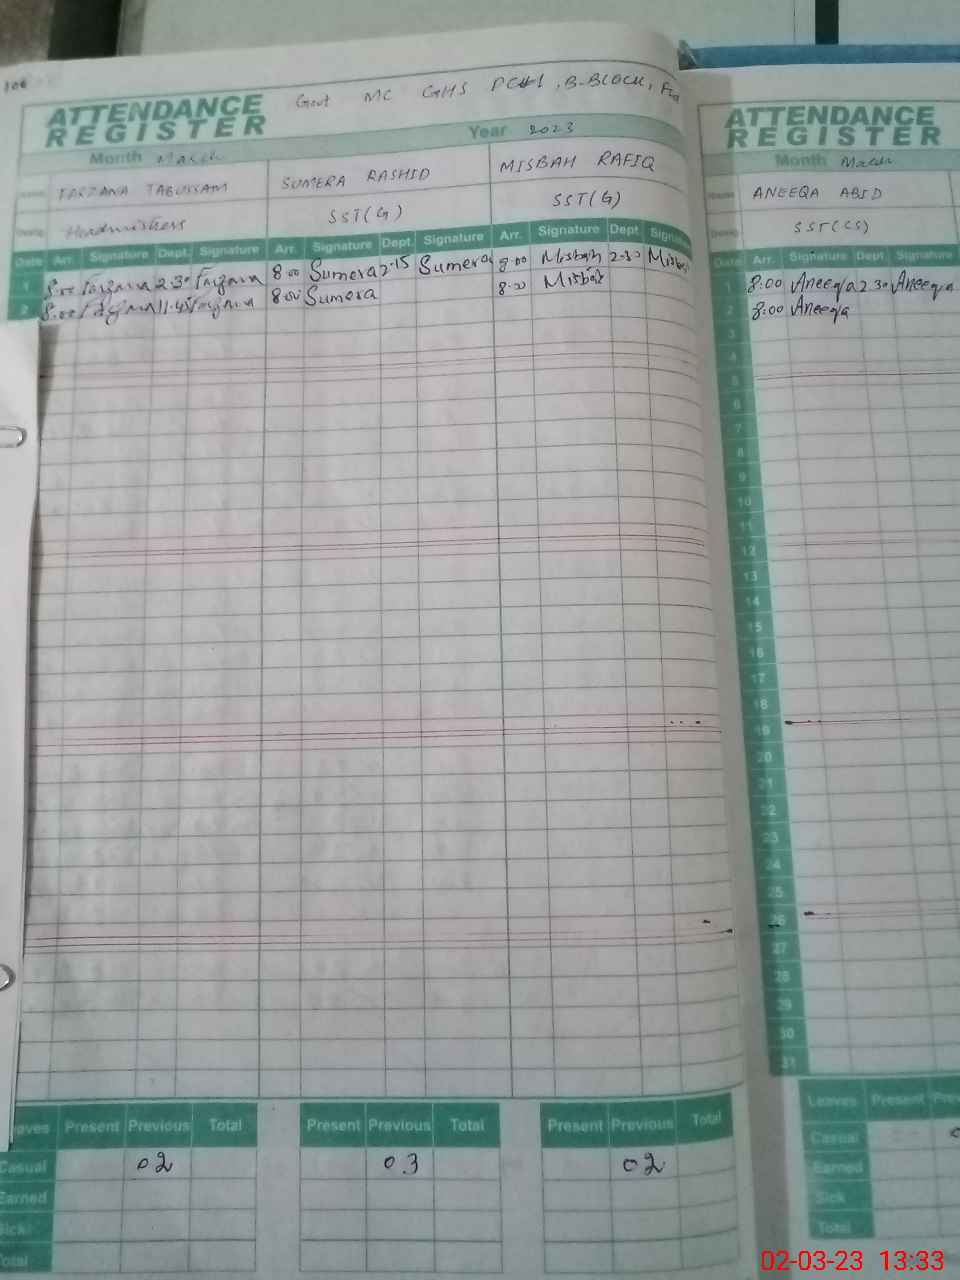 106
Govt MC GHS PC#1, B-BLOCK,
ATTENDANCE
REGISTER
Month March Year 2023
FARZANA TABUSSAM SUMERA RASHID MISBAH RAFIQ
Headmistress SST(G) SST(G)
Date Arr. Signature Dept. Signature Arr. Signature Dept. Signature Arr. Signature Dept. Signature
1 8:00 Farzana 2:30 Farzana 8:00 Sumera 2-15 Sumera 8:00 Misbah 2-30 Misbah
2 8:00 Farzana 11:45 Farzana 8:00 Sumera 8:00 Misbah
eaves Present Previous Total Present Previous Total Present Previous Total
Casual 02 03 02
Earned
Sick
Total
ATTENDANCE
REGISTER
Month March
ANEEQA ABID
SST(CS)
Date Arr. Signature Dept. Signature
1 8:00 Aneeqa 2:30 Aneeqa
2 8:00 Aneeqa
3
4
5
6
7
8
9
10
11
12
13
14
15
16
17
18
19
20
21
22
23
24
25
26
27
28
29
30
31
Leaves Present Prev
Casual
Earned
Sick
Total
02-03-23 13:33